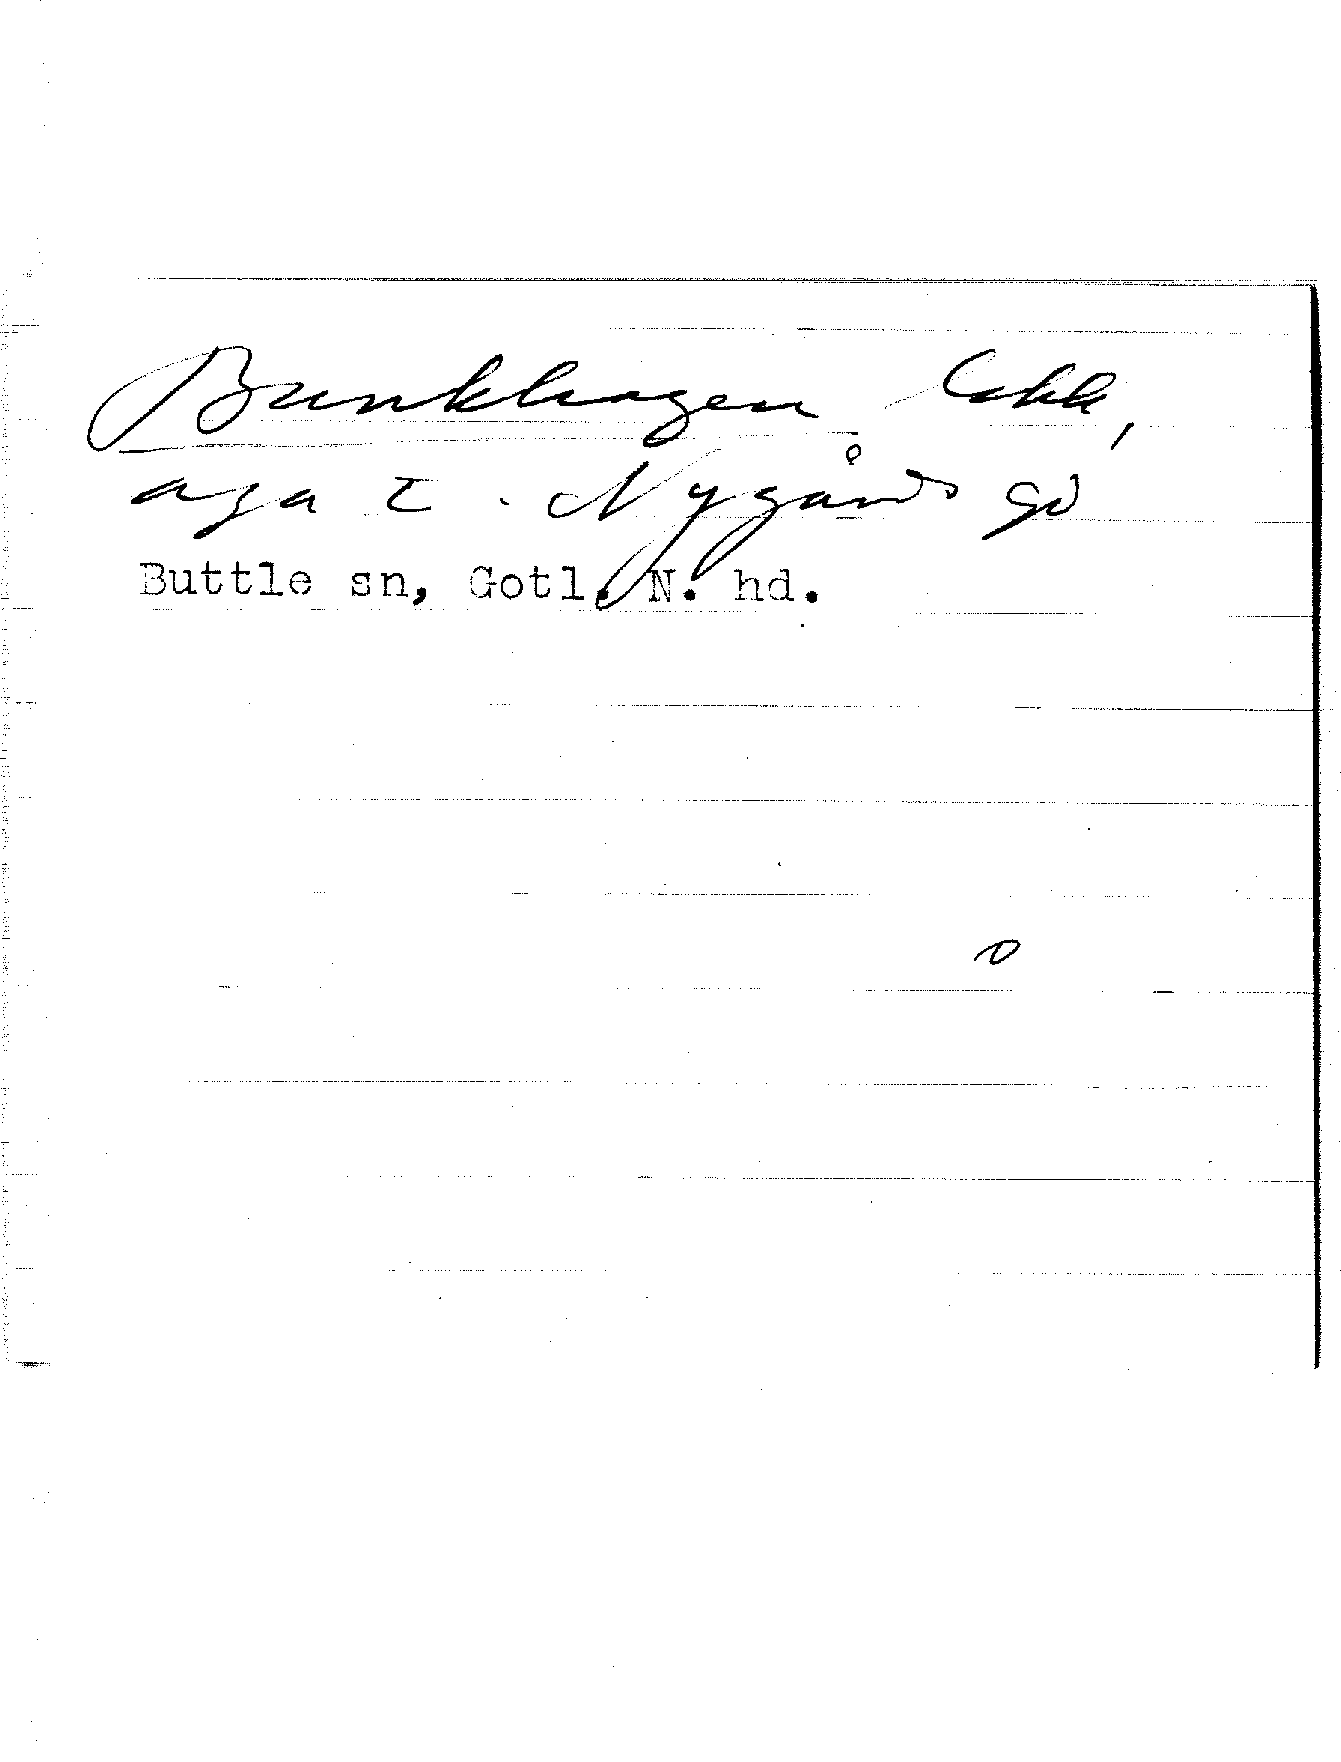 Bunkhagen
aga t. Nygårds gd
Buttle sn, Gotl. N. hd.